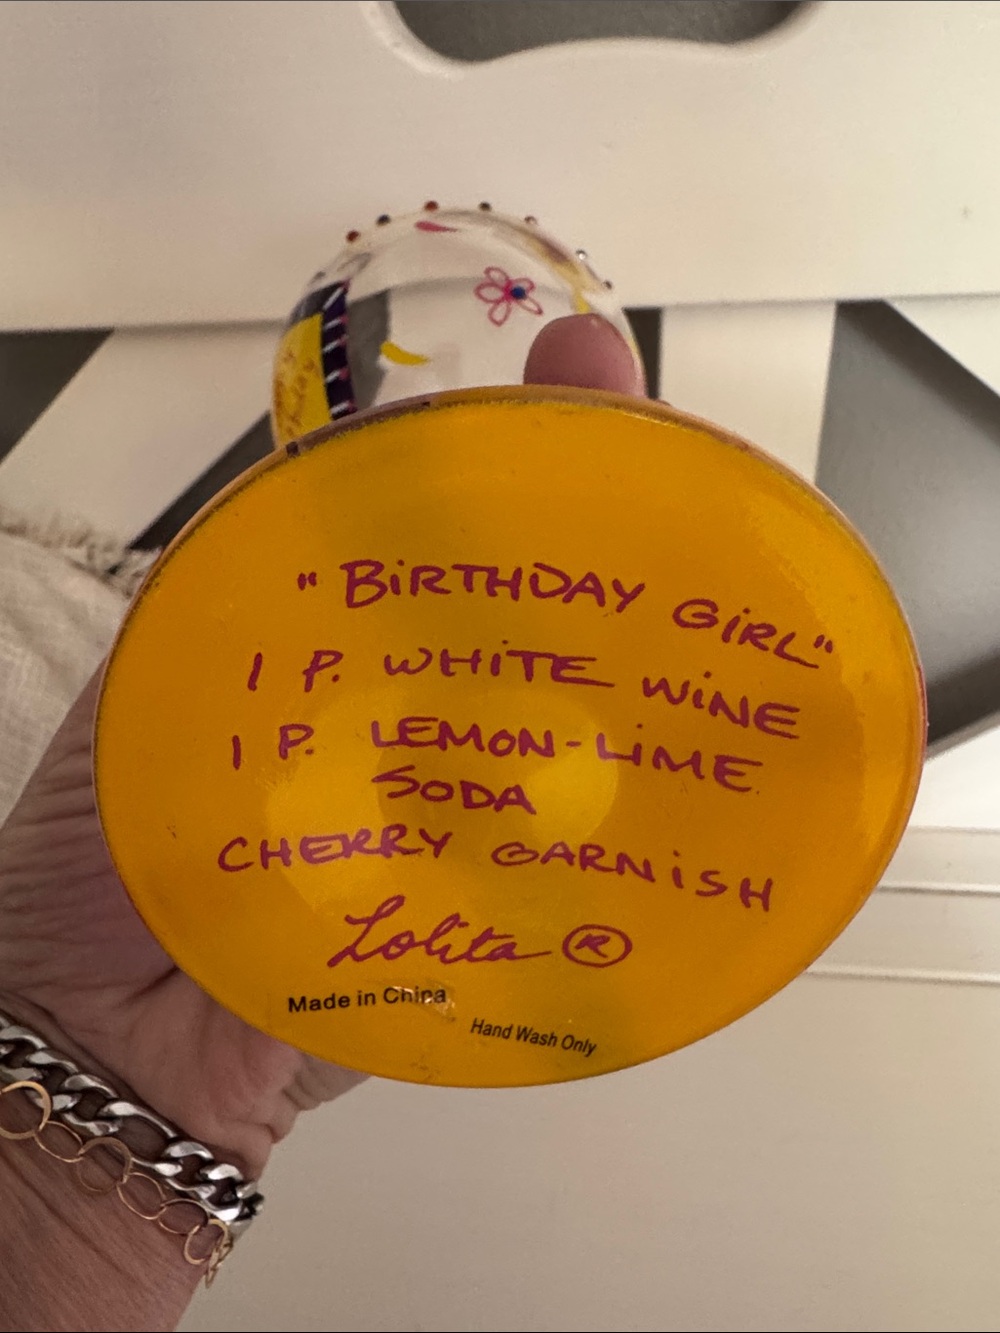 "BiRTHDAY GiRL"
1 P. WHiTE WiNE
1 P. LEMON-LiME
SODA
CHERRY GARNiSH
Lolita ®
Made in China
Hand Wash Only